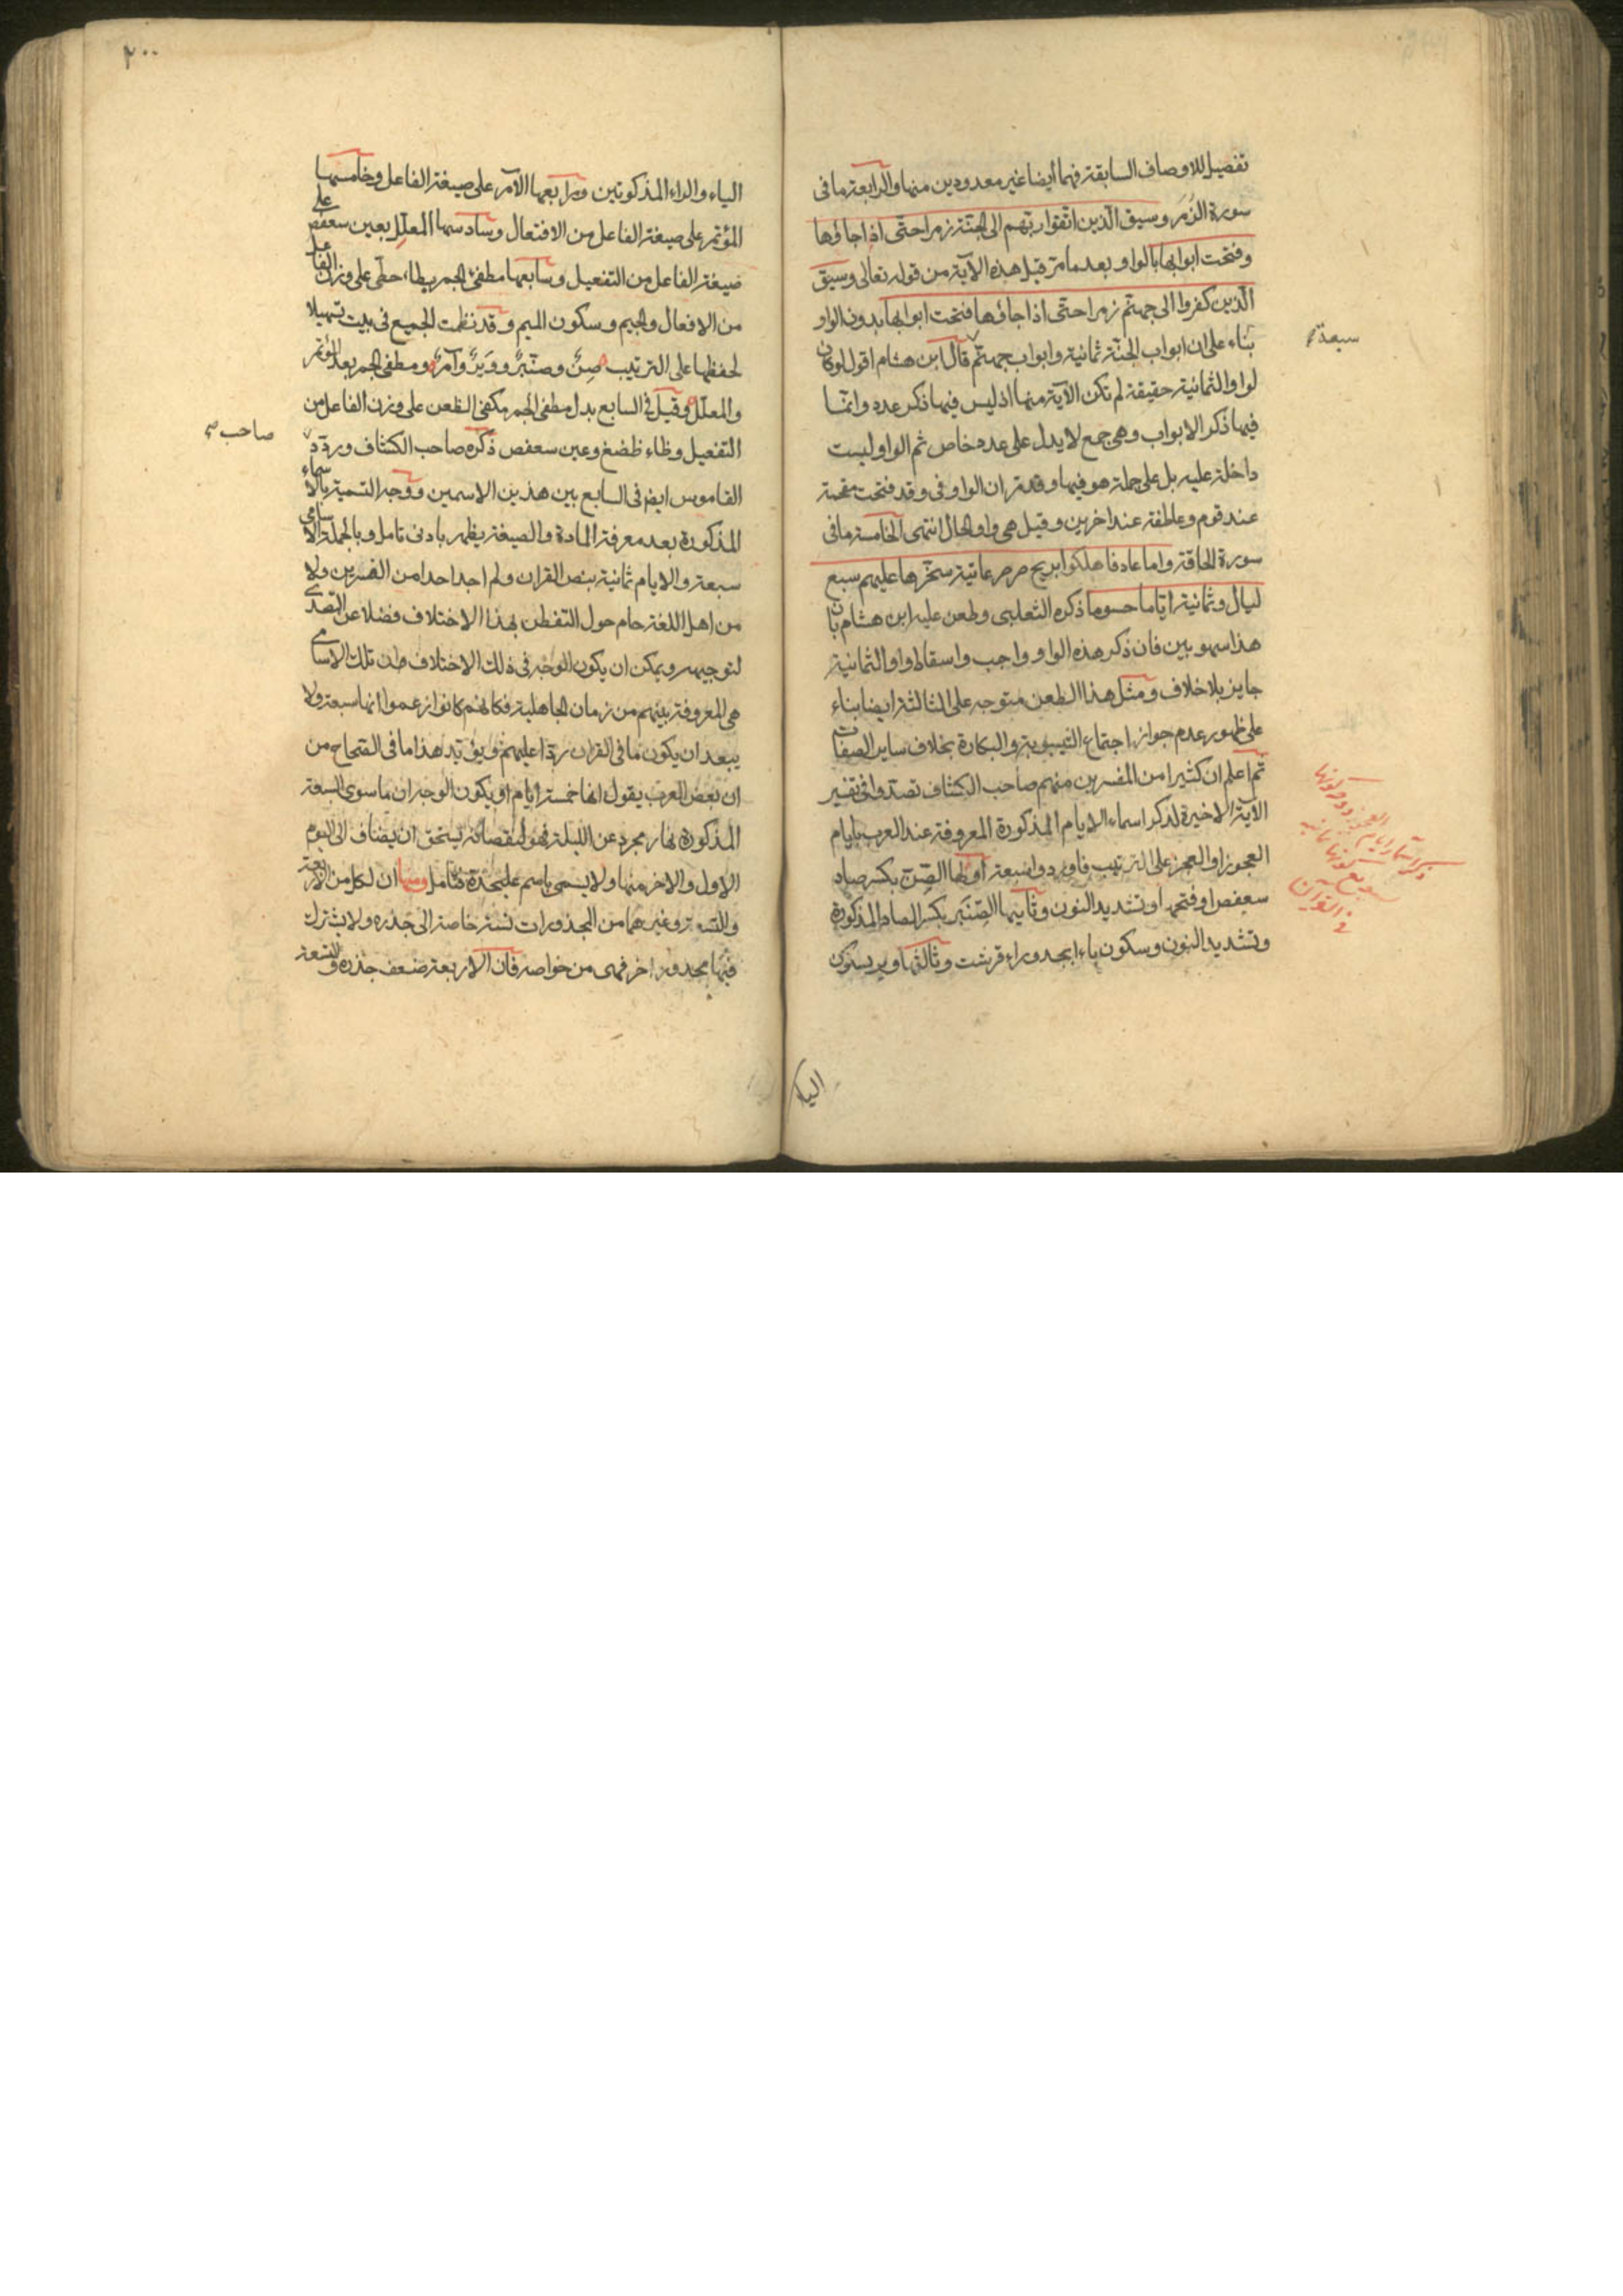 تفصيل للاوصاف السابقة فهما أيضا غير معدودين منها والرابعة ما فى
سورة الزمر وسيق الّذين اتّقوا ربّهم الى الجنّة زمرا حتّى اذا جاؤها
وفتحت ابوابها بالواو بعد ما مرّ قبل هذه الآية من قوله تعالى وسيق
الّذين كفروا الى جهنّم زمرا حتى اذا جاؤها فتحت ابوابها بدون الواو
بناء على ان ابواب الجنّة ثمانية وابواب جهنّم قال ابن هشام اقول لو كان
سبعة
لواو الثمانية حقيقة لم تكن الآية منها اذ ليس فيها ذكر عدد وانّما
فيها ذكر الابواب وهى جمع لا يدل على عدد خاص ثم الواو ليست
داخلة عليه بل على جملة هو فيها وقد مر ان الواو فى وقد فتحت مقحمة
عند قوم وعاطفة عند اخرين وقيل هى واو الحال انتهى الخامسة ما فى
سورة الحاقة واما عاد فاهلكوا بريح صرصر عاتية سخّرها عليهم سبع
ليال وثمانية ايّاما حسوما ذكره الثعلبى وطعن عليه ابن هشام بان
هذا سهو بين فان ذكر هذه الواو واجب واسقاط واو الثمانية
جايز بلا خلاف ومثل هذا الطعن متوجه على الثالثة ايضا بناء
على ظهور عدم جواز اجتماع الثيبوبة والبكارة بخلاف ساير الصفات
ثم اعلم ان كثيرا من المفسرين منهم صاحب الكشاف تصدوا فى تفسير
الآية الاخيرة لذكر اسماء الايام المذكورة المعروفة عند العرب بايام
العجوز او العجز على الترتيب فاوردوا سبعة أولها الصِّنّ بكسر صاد
سعفص او فتحها وتشديد النون وثانيها الصِّنَّبر بكسر الصاد المذكورة
وتشديد النون وسكون باء ابجد وراء قرشت وثالثها وبر بسكون
ذكر اسماء ايام العجوز
فى القرآن
الياء
٢٠٠
الياء والراء المذكورتين ورابعها الآمر على صيغة الفاعل وخامسها
المؤتمر على صيغة الفاعل من الافتعال وسادسها المعلّل بعين سعفص على
صيغة الفاعل من التفعيل وسابعها مطفئ الجمر بطاء حطّى على وزن الفاعل
من الافعال والجيم وسكون الميم وقد نظمت الجميع فى بيت تسهيلا
لحفظها على الترتيب صِنٌّ وصنّبرٌ ووَبرٌ وآمرٌ ومطفى الجمر بعد المؤتمر
والمعلّل وقيل فى السابع بدل مطفى الجمر مكفى الظعن على وزن الفاعل من
التفعيل وظاء ظضغ وعين سعفص ذكره صاحب الكشاف وردّد
صاحب صح
القاموس ايضا فى السابع بين هذين الاسمين ووجه التسمية بالاسماء
المذكورة بعد معرفة المادة والصيغة يظهر بادنى تامل وبالجملة الاسامى
سبعة والايام ثمانية بنص القران ولم اجد احدا من المفسرين ولا
من اهل اللغة حام حول التفطن بهذا الاختلاف فضلا عن التصدى
لتوجيهه ويمكن ان يكون الوجه فى ذلك الاختلاف ان تلك الاسامى
هى المعروفة بينهم من زمان الجاهلية فكانهم كانوا زعموا انها سبعة ولا
يبعد ان يكون ما فى القران ردّا عليهم ويؤيد هذا ما فى الصحاح من
ان بعض العرب يقول انها خمسة أيام او يكون الوجه ان ما سوى السبعة
المذكورة نهار مجرد عن الليلة فهو لنقصانه يستحق ان يضاف الى اليوم
الاول والاخر منها ولا يسمى باسم عليحدة فتامل ومنها ان لكل من الاربعة
والتسعة وغيرهما من المجذورات نسبة خاصة الى جذره ولا يشترك
فيها مجذور اخر فهى من خواصه فان الاربعة ضعف جذره والتسعة